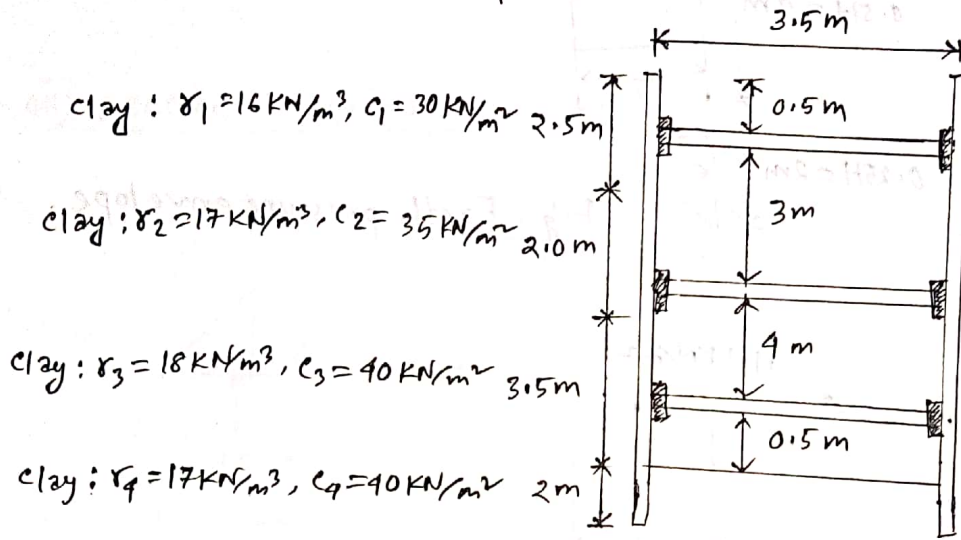 3.5m
clay : γ₁ = 16 KN/m³, C₁ = 30 KN/m² 2.5m
0.5m
clay : γ₂ = 17 KN/m³, C₂ = 35 KN/m² 2.0m
3m
clay : γ₃ = 18 KN/m³, C₃ = 40 KN/m² 3.5m
4m
0.5m
clay : γ₄ = 17 KN/m³, C₄ = 40 KN/m² 2m